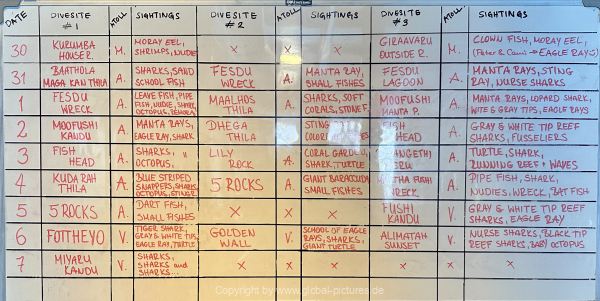 DATE DIVESITE #1 ATOLL SIGHTINGS DIVESITE #2 ATOLL SIGHTINGS DIVESITE #3 ATOLL SIGHTINGS
30 KURUMBA HOUSER. M. MORAY EEL, SHRIMPS, NUDIE × × × GIRAAVARU OUTSIDE R. M. CLOWN FISH, MORAY EEL, → EAGLE RAYS)
31 BAATHOLA MAGA KAN THILA A. SHARKS, SAND SCHOOL FISH FESDU WRECK A. MANTA RAY, SMALL FISHES FESDU LAGOON A. MANTA RAYS, STING RAY, NURSE SHARKS
1 FESDU WRECK A. LEAVE FISH, PIPE FISH, NUDIE, SHARK, OCTOPUS, MAALHOS THILA A. SHARKS, SOFT CORALS, STONE F. MOOFUSHI MANTA P. A. MANTA RAYS, LOPARD SHARK, WITE & GRAY TIPS, EAGLE RAYS
2 MOOFUSHI KANDU A. MANTA RAYS, EAGLE RAY, SHARK DHEGA THILA STING FISH HEAD A. GRAY & WHITE TIP REEF SHARKS, FUSSELIERS
3 FISH HEAD A. SHARKS, OCTOPUS, LILY ROCK A. CORAL GARDEN, SHARK, TURTLE A. TURTLE, SHARK, RUNNING REEF + WAVES
4 KUDARAH THILA A. BLUE STRIPED SNAPPERS, SHARKS, OCTOPUS, 5 ROCKS A. GIANT BARACUDA SMALL FISHES FUSHI WRECK A. PIPE FISH, SHARK, NUDIES, WRECK, BAT FISH
5 5 ROCKS A. DART FISH, SMALL FISHES × × × FUSHI KANDU V. GRAY & WHITE TIP REEF SHARKS, EAGLE RAY
6 FOTTHEYO V. TIGER SHARK, GRAY & WHITE TIPS, EAGLE RAY, TURTLE GOLDEN WALL V. SCHOOL OF EAGLE RAYS, SHARKS, GIANT TURTLE ALIMATAH SUNSET V. NURSE SHARKS, BLACK TIP REEF SHARKS, BABY OCTOPUS
7 MIYARU KANDU V. SHARKS, SHARKS and SHARKS... × × × × × ×
Copyright by www.global-pictures.de